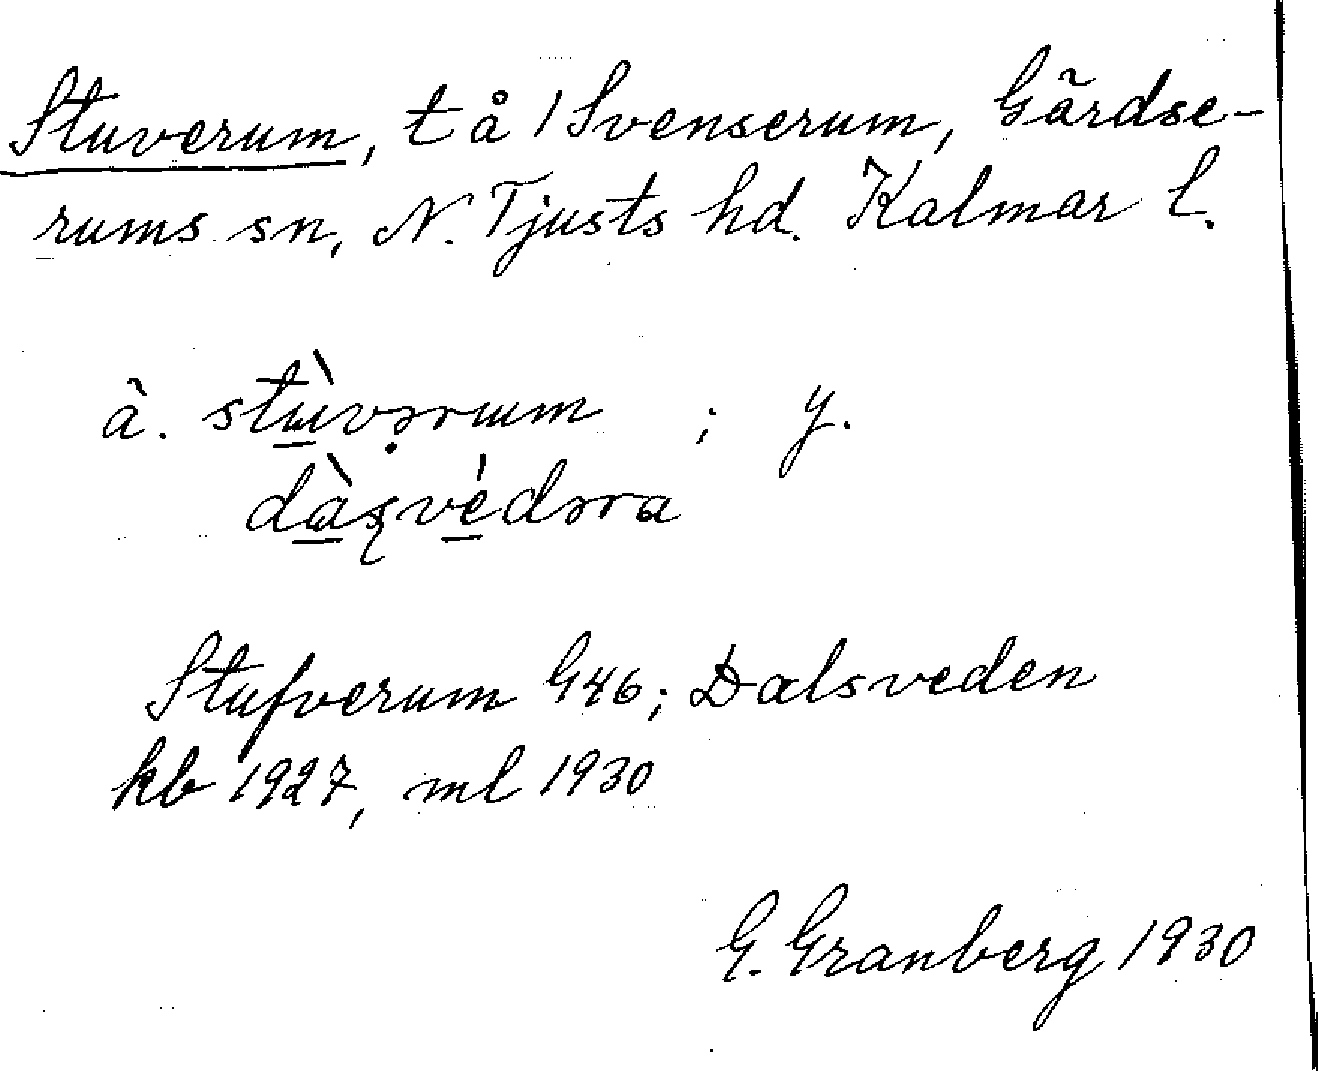 Stuverum, t å 1 Svenserum, Gärdse-
rums sn, N. Tjusts hd. Kalmar l.
à. stɯ̀vərɯm ; y.
dàʂvédəra
Stufverum G46; Dalsveden
kb 1927, ml 1930
G. Granberg 1930